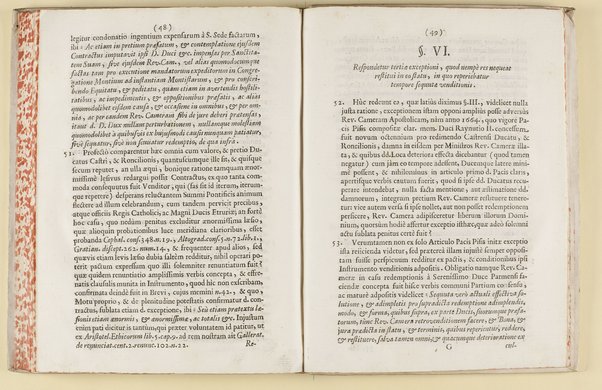 (48)
legitur condonatio ingentium expensarum à S. Sede factarum,
ibi « Ac etiam in pretium præfatum, & contemplatione ejusdem
Contractus imputavit ipsi D. Duci &c. impensas per Sanctita-
tem Suam, sive ejusdem Rev. Cam., vel alias quomodocumque
factas tam pro executione mandatorum expeditorum in Congre-
gatione Montium ad instantiam Montistarum, & pro conscri-
bendo Equitatu, & peditatu, quàm etiam in avertendis hostili-
tatibus, ac impedimentis, & oppositionibus præfatis, ac aliàs
quomodolibet ejusdem causâ, & occasione in omnibus, & per om-
nia, ac per eandem Rev. Cameram sibi de jure deberi prætensas,
itaut d. D. Dux nullam perturbationem, nullamque molestiam
quomodolibet à quibusvis ex hujusmodi causis unquam patiatur,
sivè sequatur, sivè non sequatur redemptio, de qua infra »
51. Profectò comparentur hæc omnia cum valore, & pretio Du-
catus Castri, & Roncilionis, quantuscumque ille sit, & quisque
secum reputet, an ulla æqui, bonique ratione tamquam ænor-
missimè lesivus redargui possit Contractus, ex quo tanta commo-
da consequutus fuit Venditor, qui (fas sit id iterum, iterum-
que repetere) desperans reluctantem Summi Pontificis animum
flectere ad illum celebrandum, cum tandem pervicit precibus,
atque officiis Regis Catholici, ac Magni Ducis Etruriæ; an forsè
hoc casu, quo nedum penitus excluditur ænormissima læsio,
quæ alioquin probationibus luce meridiana clarioribus, esset
probanda Cephal. cons. 348. n. 19., Altograd. cons. 5. n. 72. lib. 1.,
Gratian. discept. 262. num. 14., & frequenter apud alios, sed
quævis etiam levis læsio dubia saltem redditur, nihil operari po-
terit pactum expressum quo illi solemniter renuntiatum fuit?
quæ quidem renuntiatio amplissimis verbis concepta, & effre-
natis clausulis munita in Instrumento, quod hic non exscribam
confirmata dicindè fuit in Brevi, cujus memini n. 42., & quo,
Motu proprio, & de plenitudine potestatis confirmatur d. con-
tractus, sublata etiam d. exceptione, ibi « Seù etiam prætextu læ-
sionis etiam ænormis, & ænormissimæ, ac totalis &c. Injustum
enim pati dicitur is tantùm, qui præter voluntatem id patitur, ut
ex Aristotel. Ethicorum lib. 5. cap. 9. ad rem nostram ait Gallerat.
de renunciat. cent. 2. renunc. 102. n. 22.
Re-
(49)
§. VI.
Respondetur tertiæ exceptioni, quod nempè res nequeat
restitui in eo statu, in quo reperiebatur
tempore sequutæ venditionis.
52. Hùc redeunt eo, quæ latiùs diximus §. III., videlicet nulla
justa ratione, exceptionem istam opponi ampliùs posse adversùs
Rev. Cameram Apostolicam, nam anno 1664., quo vigore Pa-
cis Pisis compositæ clar. mem. Duci Raynutio II. concessum,
fuit novum octennium pro redimendo Castrensi Ducatu, &
Roncilionis, damna in eisdem per Ministros Rev. Cameræ illa-
ta, & quibus dd. Loca deteriora effecta dicebantur (quod tamen
negatur) cum jàm eo tempore adessent, Ducemque latere mini-
mè possent, & nihilominùs in articulo primo d. Pacis claris,
apertisque verbis cautum fuerit, quod si ipse dd. Ducatus recu-
perare intendebat, nulla facta mentione, aut æstimatione dd.
damnorum, integrum pretium Rev. Cameræ restituere tenere-
tur: vice autem versa si ipse nollet, aut non posset redemptionem
persicere, Rev. Camera adipisceretur liberum illorum Domi-
nium, quorsùm hodiè affertur exceptio isthæc, quæ adeò solemni
actu sublata penitùs certè fuit?
53. Veruntamen non ex solo Articulo Pacis Pisis initæ exceptio
ista reiicienda videtur, sed præterà illam injustè semper opposi-
tam fuisse perspicuum redditur ex pactis, & conditionibus ipsi
Instrumento venditionis adpositis. Obligatio namque Rev. Ca-
meræ in casu redemptionis à Serenissimo Duce Parmensi fa-
ciendæ concepta fuit hisce verbis communi Partium consensu,
ac maturè adpositis videlicet « Sequuta verò actuali effectiva so-
lutione, & adimpletis pro supradicta redemptione adimplendis,
modo, & forma, quibus supra, ex parte Ducis, suorumque præfa-
torum, tùnc Rev. Camera retrovenditionem facere, & Bona, &
jura prædicta in statu, & terminis, quibus reperientur, reddere,
& restituere, salva tamen omni, & quacumque deterioratione ex
G
cul-